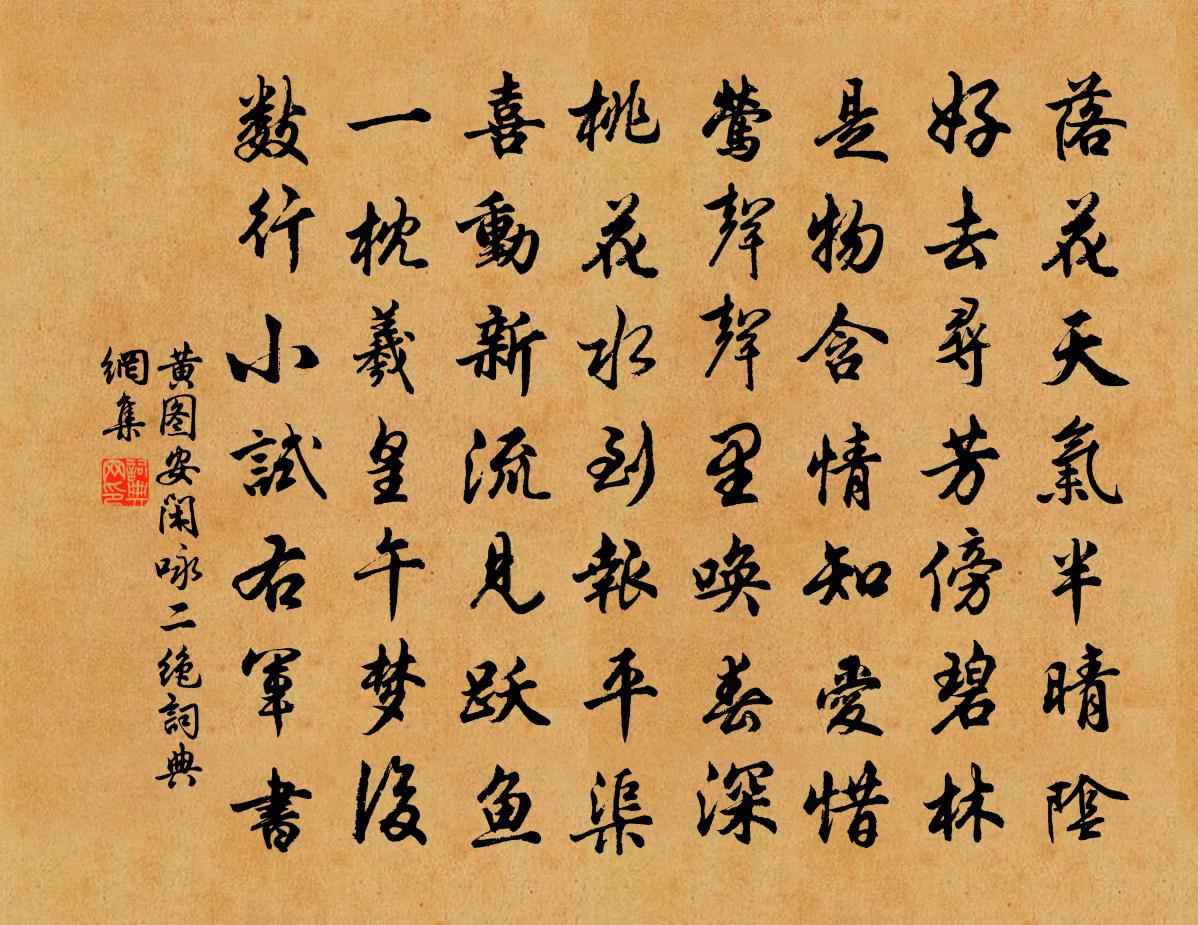 落花天氣半晴陰
好去尋芳傍碧林
是物含情知愛惜
鶯聲聲里喚春深
桃花水到報平渠
喜動新流見跃鱼
一枕羲皇午梦後
數行小試右軍書
黄图安闲咏二绝詞典
網集
詞典
网印